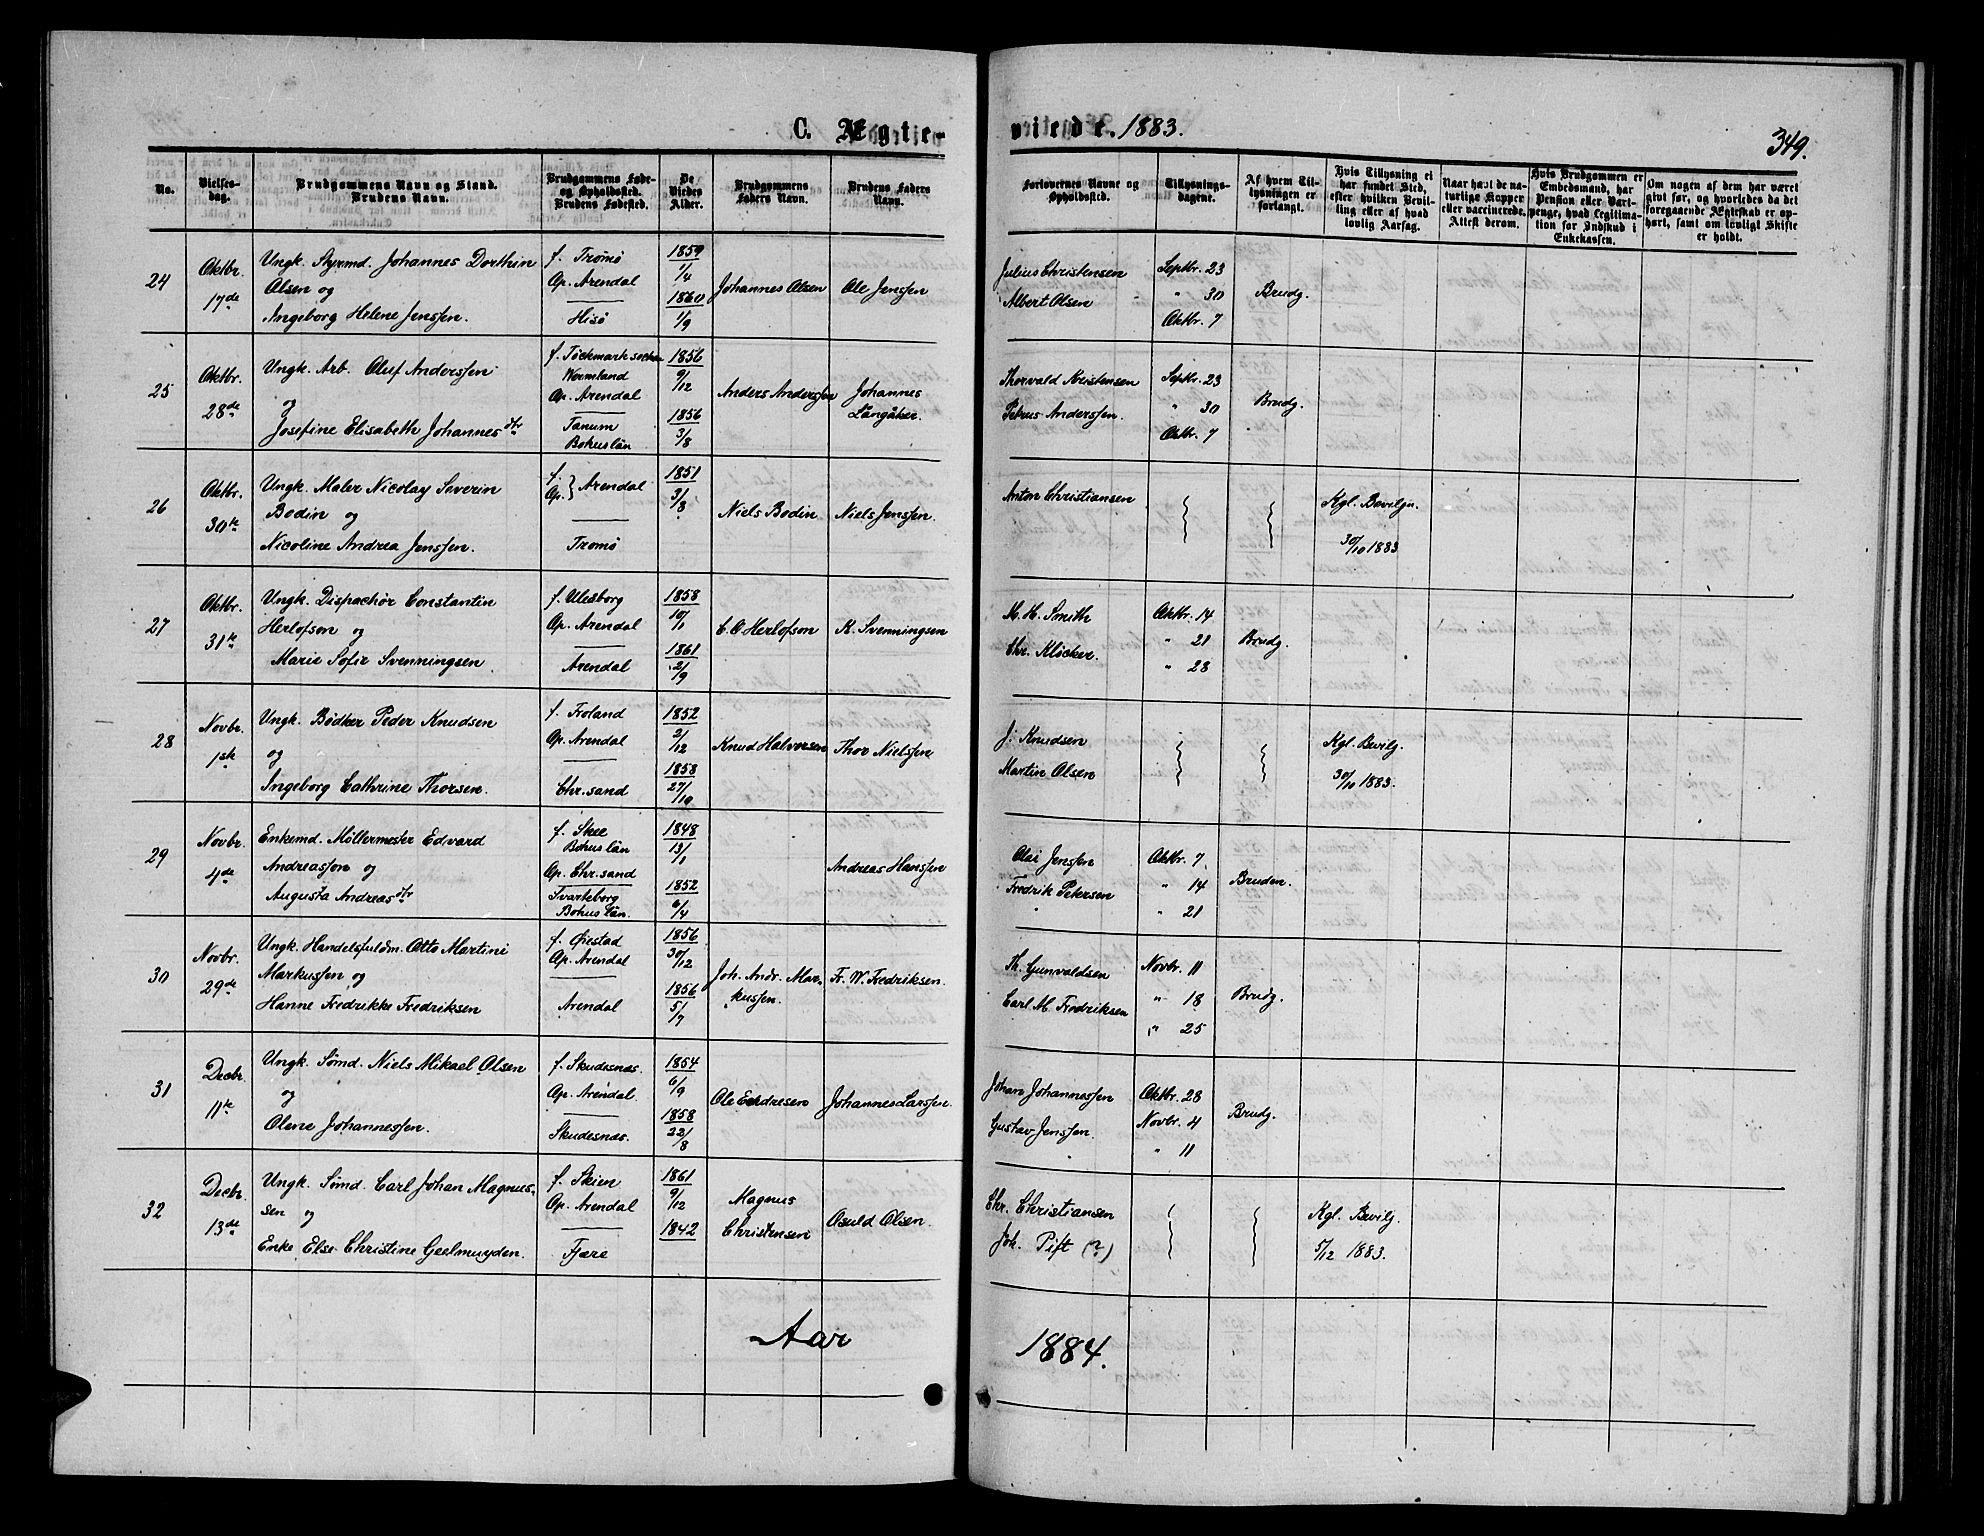 C. Ægte-
viede. 1883.
349.
No.
Vielses-
dag.
Brudgommens Navn og Stand.
Brudens Navn.
Brudgommens Føde-
og Opholdssted.
Brudens Fødested.
De
Viedes
Alder.
Brudgommens
Faders Navn.
Brudens Faders
Navn.
Forlovernes Navne og
Opholdssted.
Tillysnings-
dagene.
Af hvem Til-
lysningen er
forlangt.
Hvis Tillysning ei
har fundet Sted,
efter hvilken Bevil-
ling eller af hvad
lovlig Aarsag.
Naar havt de na-
turlige Kopper
eller vaccinerede.
Attest derom.
Hvis Brudgommen er
Embedsmand, har
Pension eller Vart-
penge, hvad Legitima-
tion for Indskud i
Enkekassen.
Om nogen af dem har været
gift før, og hvorledes da det
foregaaende Ægteskab er op-
hørt, samt om lovligt Skifte
er holdt.
24
Oktbr.
17de
Ungk. Styrmd. Johannes Dorthin
Olsen og
Ingeborg Helene Jenssen.
f. Tromø
Op. Arendal
Hisø
1859
1/4
1860
1/9
Johannes Olsen
Ole Jenssen
Julius Christensen
Albert Olsen
Septbr. 23
" 30
Oktbr. 7
Brudg.
25
Oktbr.
28de
Ungk. Arb. Oluf Anderssen
og
Josefine Elisabeth Johannesdtr
f. Töckmark socken
Wermland
Op. Arendal
Tanum
Bohuslän
1856
9/12
1856
3/8
Anders Anderssen
Johannes
Långåker.
Thorvald Kristensen
Petrus Anderssen.
Septbr. 23
" 30
Oktbr. 7
Brudg.
26
Oktbr.
30te
Ungk. Maler Nicolay Severin
Bodin og
Nicoline Andrea Jenssen.
f. } Arendal
Op.
Tromø
1851
3/8
Niels Bodin
Niels Jenssen.
Anton Christiansen
Kgl. Bevilgn.
30/10 1883
27
Oktbr.
31te
Ungk. Dispachør Constantin
Herlofson og
Marie Sofie Svenningsen.
f. Uleaborg
Op. Arendal
Arendal
1858
10/1
1861
2/9
C. O Herlofson
K. Svenningsen
M. H. Smith
Chr. Klöcker.
Oktbr. 14
" 21
" 28
Brudg.
28
Novbr.
1ste
Ungk. Bødker Peder Knudsen
og
Ingeborg Cathrine Thorsen.
f. Froland
Op. Arendal
Chr.sand
1852
2/12
1858
27/10
Knud Halvorsen
Thor Nielssen
J. Knudsen
Martin Olsen
Kgl. Bevilg.
30/10 1883.
29
Novbr.
4de
Enkemd. Møllermester Edvard
Andreassen og
Augusta Andreasdtr
f. Skee
Bohus län
Op. Chr.sand
Svarteborg
Bohus län.
1848
13/1
1852
6/4
Andreas Hanssen
Olai Jenssen
Fredrik Petersen
Oktbr. 7
" 14
" 21
Bruden.
30
Novbr.
29de
Ungk. Handelsfuldm. Otto Martini
Markussen og
Hanne Fredrikke Fredriksen
f. Øiestad
Op. Arendal
Arendal
1856
30/12
1856
5/7
Joh. Andr. Mar-
kussen.
Fr. W. Fredriksen.
Th. Gunvaldsen
Carl M. Fredriksen
Novbr. 11
" 18
" 25
Brudg.
31
Decbr.
11te
Ungk. Sømd. Niels Mikael Olsen
og
Olene Johannessen.
f. Skudesnæs.
Op. Arendal.
Skudesnæs.
1854
6/9
1858
22/8
Ole Endresen
Johannes Larssen.
Johan Johannessen
Gustav Jenssen.
Oktbr. 28
Novbr. 4
" 11
Brudg.
32
Decbr.
13de
Ungk. Sømd. Carl Johan Magnus-
sen og
Enke Else Christine Geelmuyden.
f. Skien
Op. Arendal
Fjære
1861
9/12
1842
Magnus
Christensen
Osuld Olsen.
Chr. Christiansen
Joh. Pift (?)
Kgl. Bevilg.
5/12 1883.
Aar
1884.